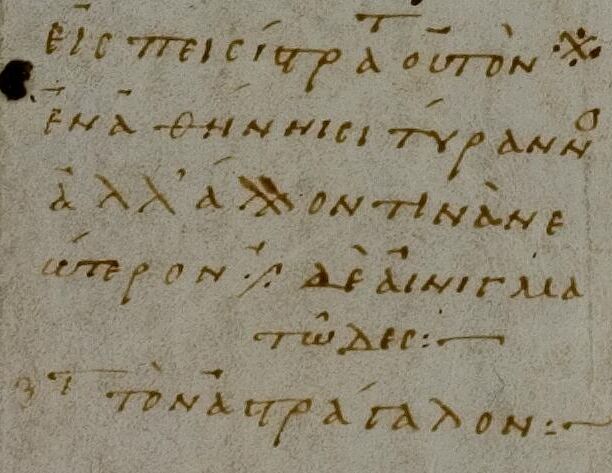 εἰς πεισίστρατ οὐ τὸν ※
ἐν ἀθήνηισι τύραννο
ἀλλ' ἄλλον τινὰ νε
ώτερον ·/· δὲ αἰνιγμα
τῶδες:—
τὸν ἀστράγαλον:—